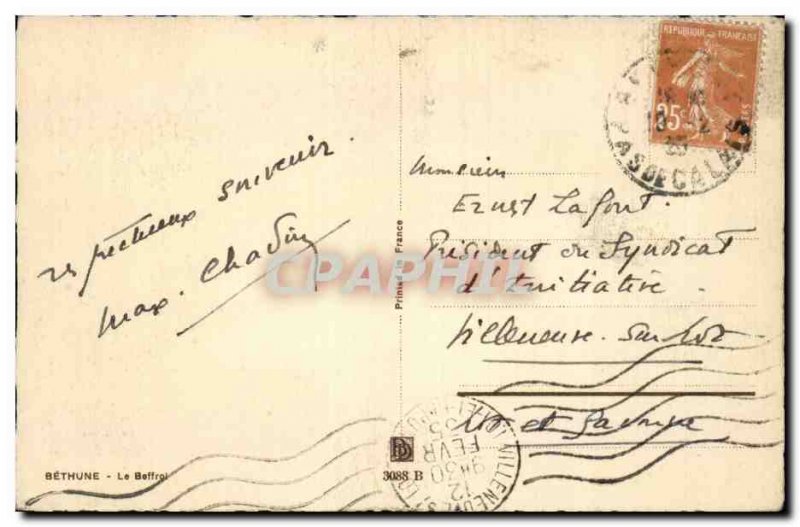 respectueux souvenir.
Max. Chadin
Printed in France
BÉTHUNE - Le Beffroi
3088 B
REPUBLIQUE FRANCAISE
35c
PAS DE CALAIS
Monsieur
Ernest Lafont.
Président du Syndicat
d'Initiative.
Villeneuve-sur-Lot
Lot et Garonne
VILLENEUVE S/ LOT
9H30
12
FEVR
35
CPAPHIL